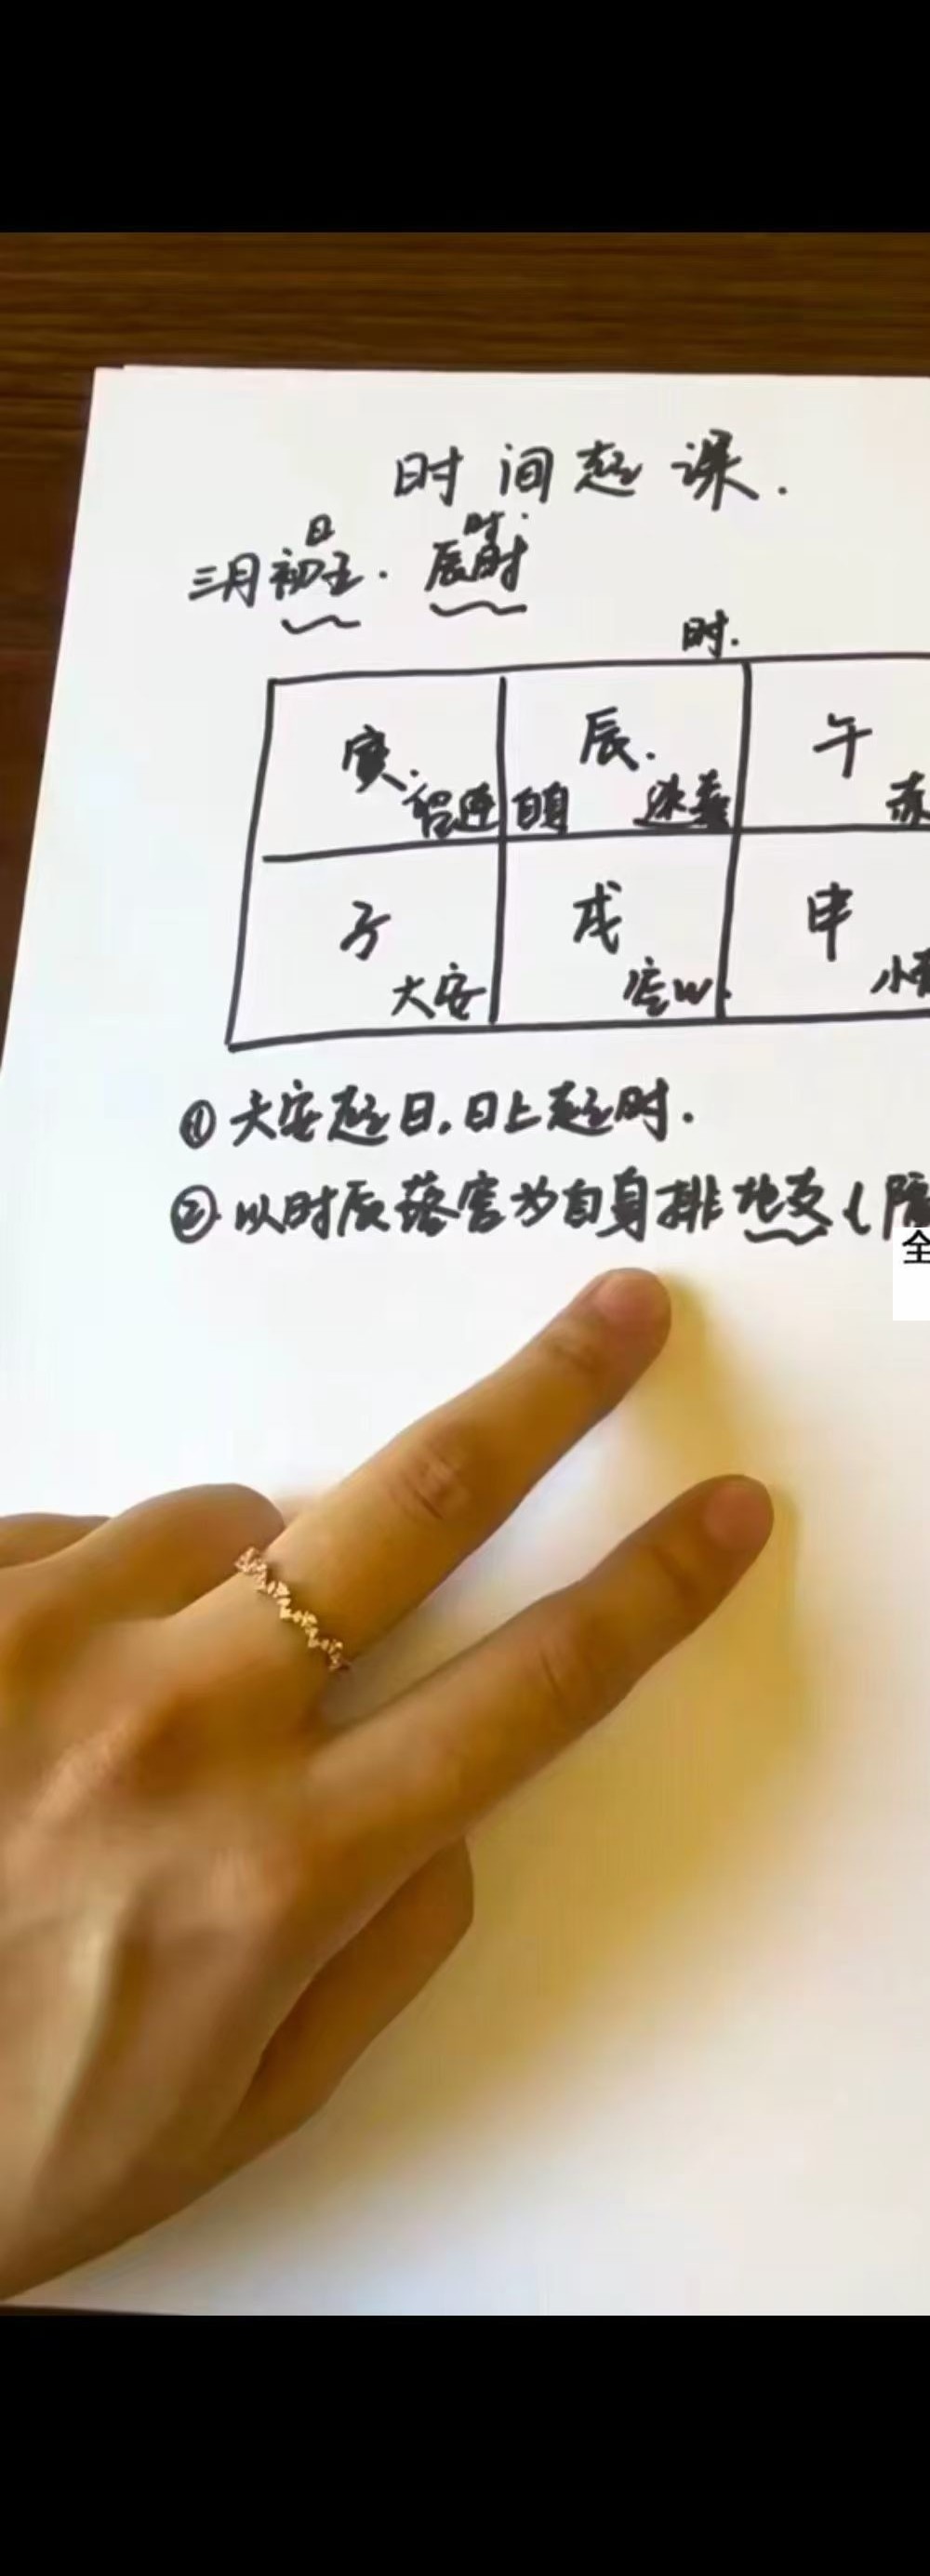 时间起课.
日 时.
三月初五. 辰时
时.
寅. 留连 自身 辰. 速喜 午 赤
子 大安 戌 空亡. 申 小
① 大安起日,日上起时.
② 以时辰落宫为自身排地支(隔
全